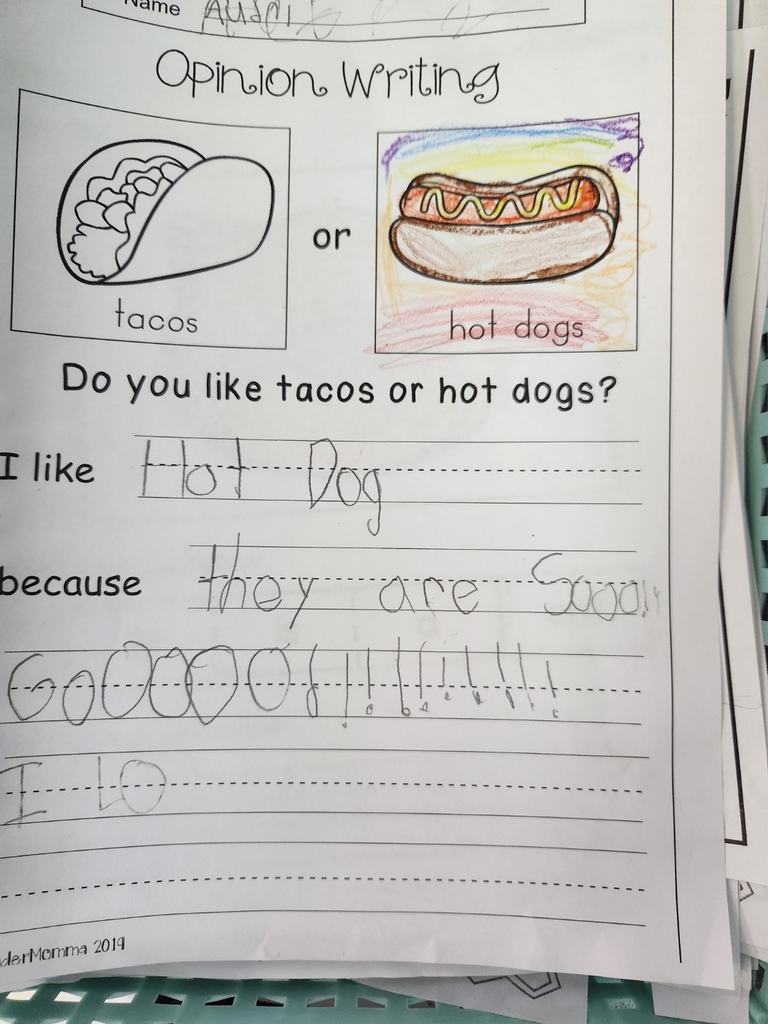 Name
Opinion Writing
or
tacos
hot dogs
Do you like tacos or hot dogs?
I like Hot Dog
because they are Sooo!!
GoOOOO
I LO
derMomma 2019